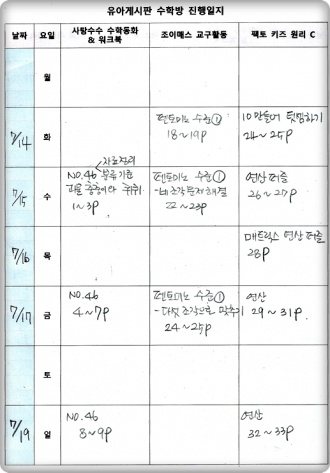 유아게시판 수학방 진행일지
날짜 요일 사탕수수 수학동화 & 워크북 조이매스 교구활동 팩토 키즈 원리 C
월
7/14 화 펜토미노 수준① 18~19P 10만들어 덧뺄셈 24~25P
7/15 수 NO.46 분류기준 1~3P 펜토미노 수준① -네조각 문제해결 22~23P 연산퍼즐 26~27P
7/16 목 매트릭스 연산 퍼즐 28P
7/17 금 NO.46 4~7P 펜토미노 수준① -다섯 조각으로 맞추기 24~25P 연산 29~31P
토
7/19 일 NO.46 8~9P 연산 32~33P